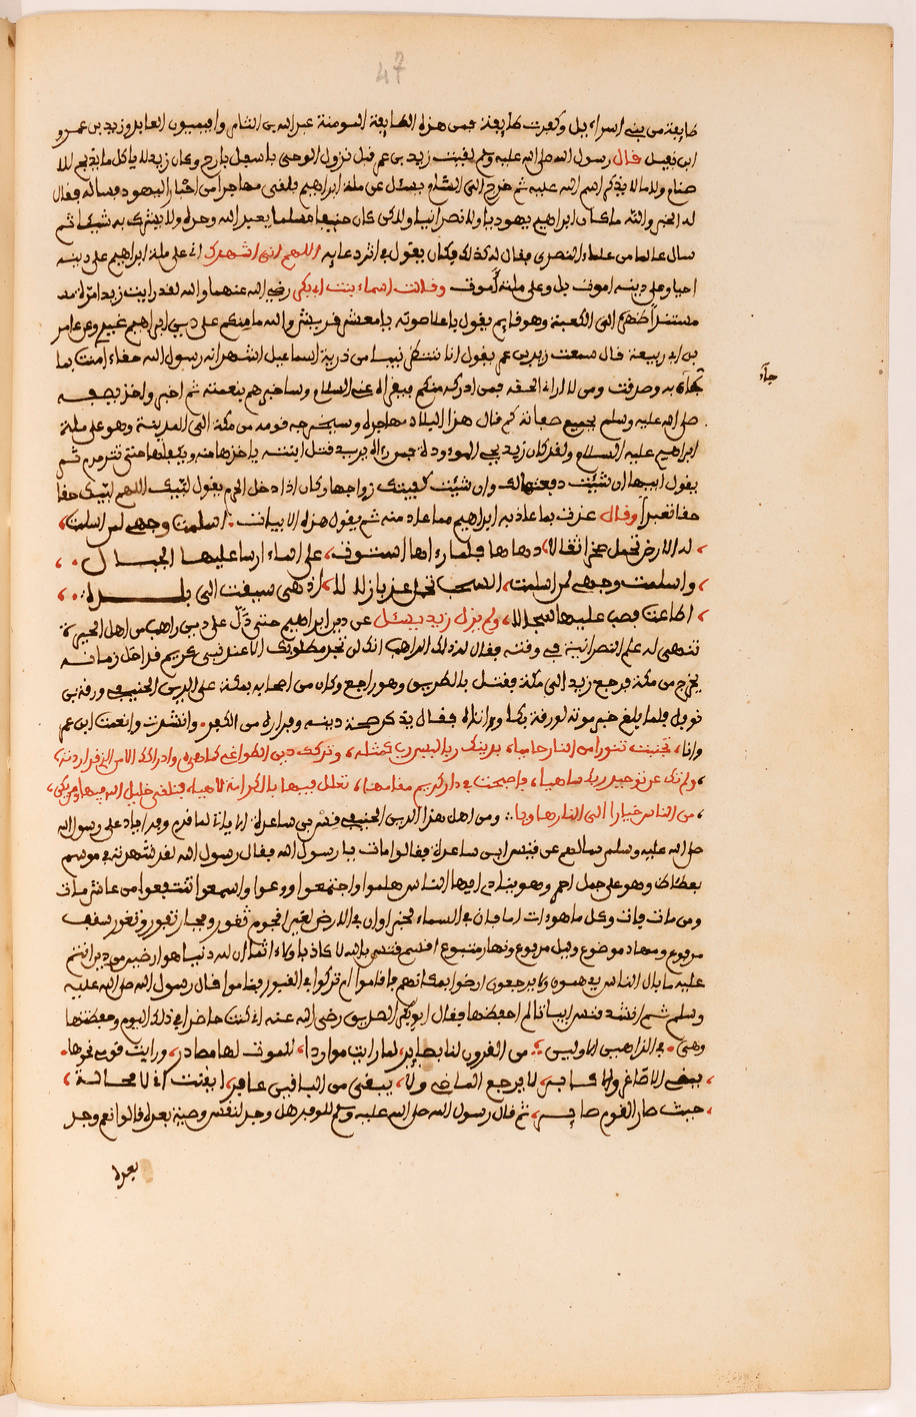 47
طايفة من بني اسراءيل وكفرت طايفة فمن هذه الطايفة المومنة عبد الله بن الثام وافيميون العابد وزيد بن عمرو
ابن نفيل قال رسول الله صلى الله عليه وسلم لقيت زيد بن عمر قبل نزول الوحي باسفل بلدح وكان زيد لا ياكل ما يذبح للا
صنام ولا ما لا يذكر اسم الله عليه ثم خرج الى الشام يسئل عن ملة ابراهيم فلقي مهاجرا من احبار اليهود فساله فقال
له الحبر والله ما كان ابراهيم يهوديا ولا نصرانيا ولاكن كان حنيفا مسلما يعبد الله وحده ولا يشرك به شيئا ثم
سال عالما من علماء النصرى فقال له كذلك فكان يقول في اثر دعايه اللهم اني اشهدك اني على ملة ابراهيم على دينه
احيا وعلى دينه اموت بل وعلى ملته اموت وقالت اسماء بنت ابي بكر رضي الله عنهما والله لقد رايت زيد
مستندا ظهره الى الكعبة وهو قايم يقول باعلا صوته يا معشر قريش والله ما منكم على دين ابراهيم غيري وعن عامر
بن ابي ربيعة قال سمعت زيد بن عمر يقول انا ننتظر نبيا من ذرية اسماعيل اشهد انه رسول الله حقا ءامنت بما
جاء به وصدقت ومن لا اراه الحقه فمن ادركه منكم فيقراه عني السلام وساخبرهم بنعته ثم اخبر واخذ يصفه
صلى الله عليه وسلم بجميع صفاته ثم قال هذا البلاد مهاجره وسيخرجه قومه من مكة الى المدينة وهو على ملة
ابراهيم عليه السلام ولقد كان زيد يحي الموءودة فمن راه يريد قتل ابنته ياخذها منه ويكفلها حتى تترعرع ثم
يقول لابيها ان شيت دفعتها لك وان شيت كفيتك زواجها وكان اذا دخل الحرم يقول لبيك اللهم لبيك حقا
حقا تعبدا وقال عذت بما عاذ به ابراهيم مما عاذ منه ثم يقول هذه الابيات اسلمت وجهي لمن اسلمت
له الارض تحمل صخرا ثقالا دحاها فلما رءاها استوت على الماء ارسا عليها الجبال
واسلمت وجهي لمن اسلمت السحب تحمل عذبا زلالا اذا هي سيقت الى بلدة
اطاعت فصب عليها سجالا ولم يزل زيد يسئل عن دين ابراهيم حتى دل على دين راهب من اهل الحيرة
تنتهي له علم النصرانية في وقته فقال له ذلك الراهب انك لن تجد مطلوبك الا عند نبي كريم قد اظل زمانه
يخرج من مكة فرجع زيد الى مكة فقتل بالطريق وهو راجع وكان من اصحابه بمكة على الدين الحنيفي ورقة بن
نوفل فلما بلغ خبر موته لورقة بكا ورثا له فقال يذكر صحة دينه وفراره من الكفر وانشدت وانعمت ابن عمر
وانا تجنبت تنورا من النار حاميا بدينك ربا ليس رب كمثله وتركك دين الطواغي كما هي وادراكك الامر الذي قد اردته
ولم تك عن توحيد ربك ساهيا فاصبحت في دار كريم مقامها تعلل فيها بالكرامة لاهيا فتلقى خليل الله فيها ولم تكن
من الناس خيارا الى النار هاويا ومن اهل هذا الدين الحنيفي قس بن ساعدة الايادي لما قدم وفد اياد على رسول الله
صلى الله عليه وسلم سالهم عن قيس ابن ساعدة فقالوا مات يا رسول الله فقال رسول الله لقد شهدته في موسم
بعكاظ وهو على جمل احمر وهو ينادي ايها الناس هلموا واجتمعوا ووعوا واسمعوا تنتفعوا من عاش مات
ومن مات فات وكل ما هو ءات اما فان في السماء لخبرا وان في الارض لعبرا نجوم تغور وبحار تفور ولا تغور سقف
مرفوع ومهاد موضوع وليل مرفوع ونهار متبوع اقسم قس بالله لا كاذبا ولا ءاثما ان لله دينا هو ارضى من دين انتم
عليه ما بال الناس يذهبون ولا يرجعون ارضوا بمكانهم فاقاموا ام تركوا في القبور فناموا قال رسول الله صلى الله عليه
وسلم ثم انشد قس ابياتا لم احفظها فقال ابو بكر الصديق رضي الله عنه اني كنت حاضرا في ذلك اليوم وحفظتها
وهي في الذاهبين الاولين من القرون لنا بصاير لما رايت مواردا للموت لها مصادر ورايت قومي نحوها
يمضي الاصاغر والاكابر لا يرجع الماضي ولا يبقى من الباقين غابر ايقنت اني لا محالة
حيث صار القوم صاير ثم قال رسول الله صلى الله عليه وسلم للوفد هل وجد لقس وصية بعده قالوا نعم وجد
بعده
جاء